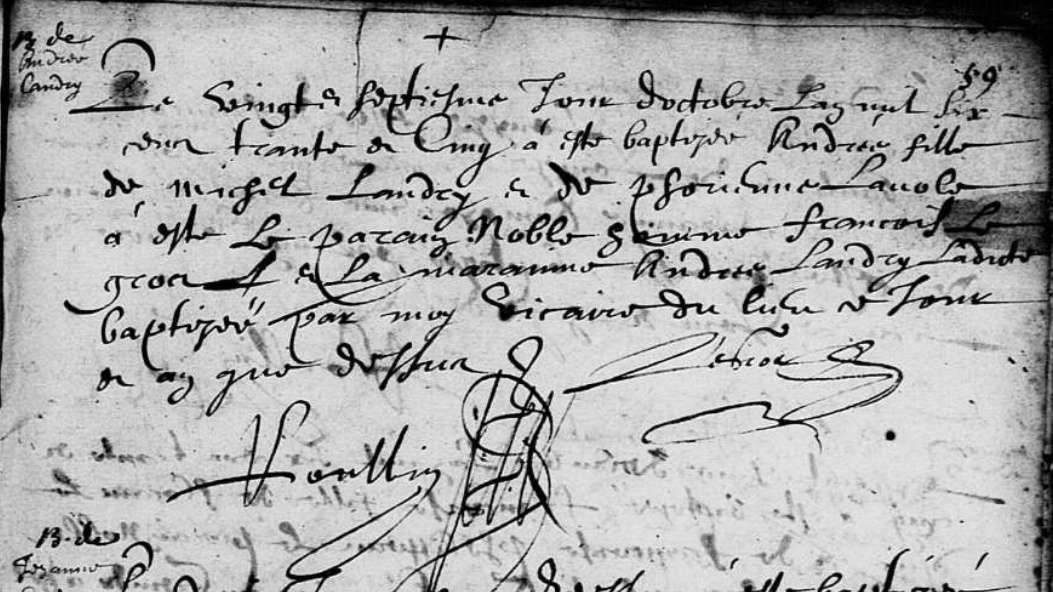 B. de
Andree
Landry
59
Le vingt et septiesme Jour doctobre Lan mil six
cens trante et Cinq à este baptisée Andree fille
de michel Landry et de phorienne Lauole
à este Le parain Noble homme francois Le
gros et La maranne Andree Landry Ladicte
baptisée par moy vicaire du lieu ce Jour
et an que dessus
B. de